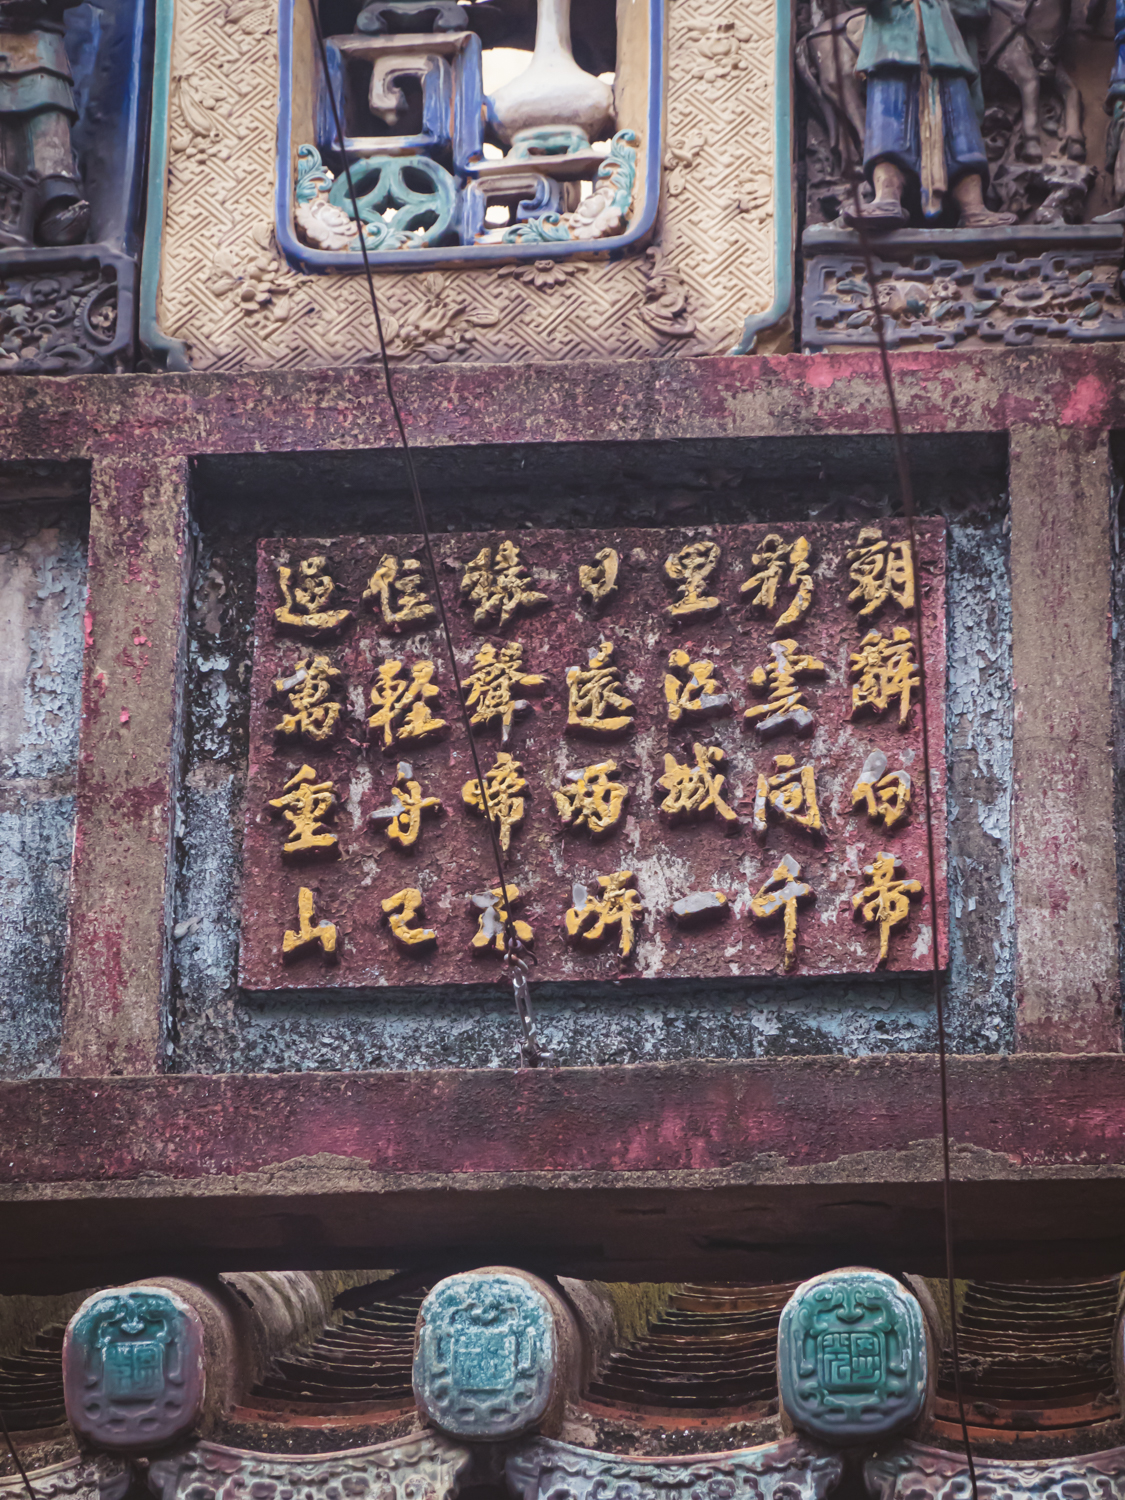 朝辭白帝
彩雲間千
里江城一
日還兩岸
猿聲啼不
住輕舟已
過萬重山